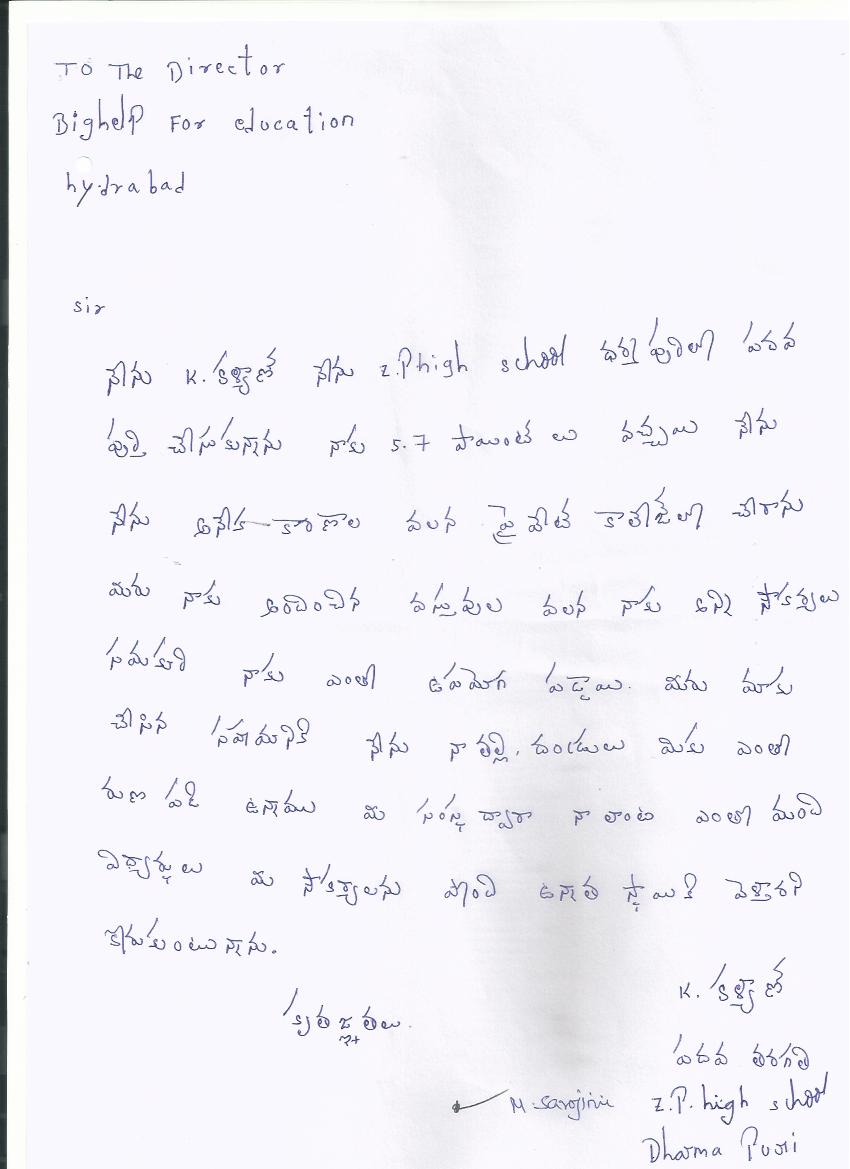 TO The Director
Bighelp For education
hydrabad
sir
నేను K. కళ్యాణి నేను Z.P high school ధర్మపురిలో పదవ
పుర్తి చేసుకున్నాను నాకు 5.7 పాయింట్ లు వచ్చయి నేను
నేను అనేక కారణాల వలన ప్రైవేట్ కాలేజ్‌లో చేరాను
మిరు నాకు అందించిన వస్తువుల వలన నాకు అన్ని సౌకర్యలు
సమకురి నాకు ఎంతో ఉపయోగ పడ్డాయి. మీరు మాకు
చేసిన సహయనికి నేను నా తల్లి, దండ్రులు మికు ఎంతో
రుణ పడి ఉన్నాము మి సంస్థ ద్వారా నా లాంటి ఎంతో మంది
విద్యార్థులు మి సౌకర్యాలను పొంది ఉన్నాత స్థాయికి వెళ్తారని
కోరుకుంటున్నాను.
కృతజ్ఞతలు.
K. కళ్యాణి
పదవ తరగతి
M. Sarojini Z.P. high school
Dharma Puri